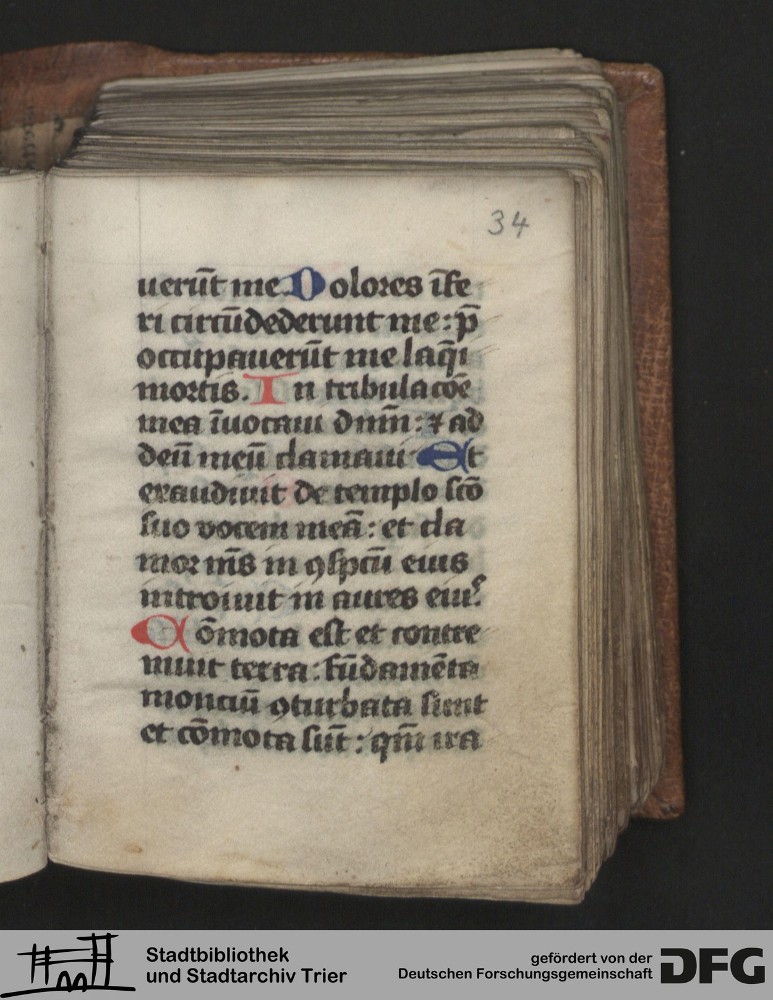 34
uerūt me Dolores īfe
ri circūdederunt me : p̄
occupauerūt me laq̄i
mortis. In tribulacōe
mea īuocaui dn̄m : ⁊ ad
deū meū clamaui Et
exaudiuit de templo scō
suo vocem meā : et cla
mor me᷒s in ꝯspcū eius
introiuit in aures eiuꝰ
Cōmota est et contre
muit terra : fūdamēta
monciū ꝯturbata sunt
et cōmota sūt : qm̄ ira
Stadtbibliothek
und Stadtarchiv Trier
gefördert von der
Deutschen Forschungsgemeinschaft
DFG